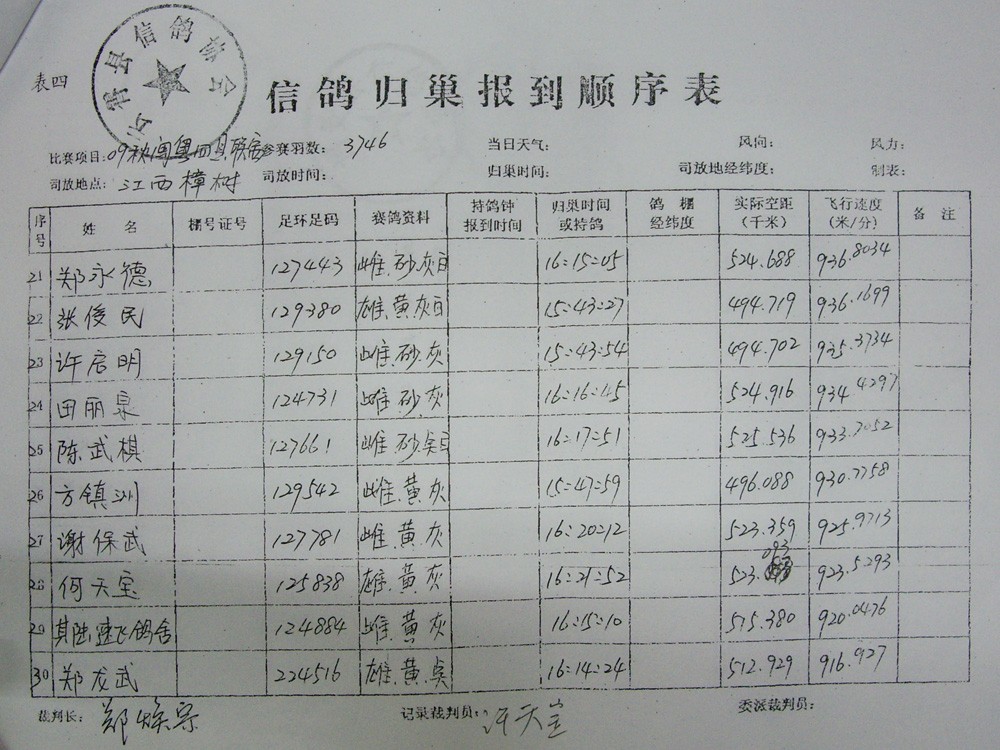 云霄县信鸽协会
表四
信鸽归巢报到顺序表
比赛项目: 09秋闽粤四县联赛 参赛羽数: 3746 当日天气: 风向: 风力:
司放地点: 江西樟树 司放时间: 归巢时间: 司放地经纬度: 制表:
序号 姓名 棚号证号 足环足码 赛鸽资料 持鸽钟报到时间 归巢时间或持鸽 鸽棚经纬度 实际空距(千米) 飞行速度(米/分) 备注
21 郑永德 127443 雌.砂.灰白 16:15:05 524.688 936.8034
22 张俊民 129380 雄.黄.灰白 15:43:27 494.719 936.1699
23 许启明 129150 雌.砂.灰 15:43:54 494.702 935.3734
24 田丽泉 124731 雌.砂.灰 16:16:45 524.916 934.4297
25 陈武棋 127661 雌.砂.吴白 16:17:51 525.536 933.7052
26 方镇洲 129542 雌.黄.灰 15:47:59 496.088 930.7758
27 谢保武 127781 雌.黄.灰 16:20:12 523.359 925.9713
28 何天宝 125838 雄.黄.灰 16:21:52 523.093 923.5293
29 其陆.建飞鸽舍 124884 雌.黄.灰 16:15:10 515.380 920.0476
30 郑龙武 224516 雄.黄.吴 16:14:24 512.929 916.927
裁判长: 郑焕 记录裁判员: 天宝 委派裁判员: